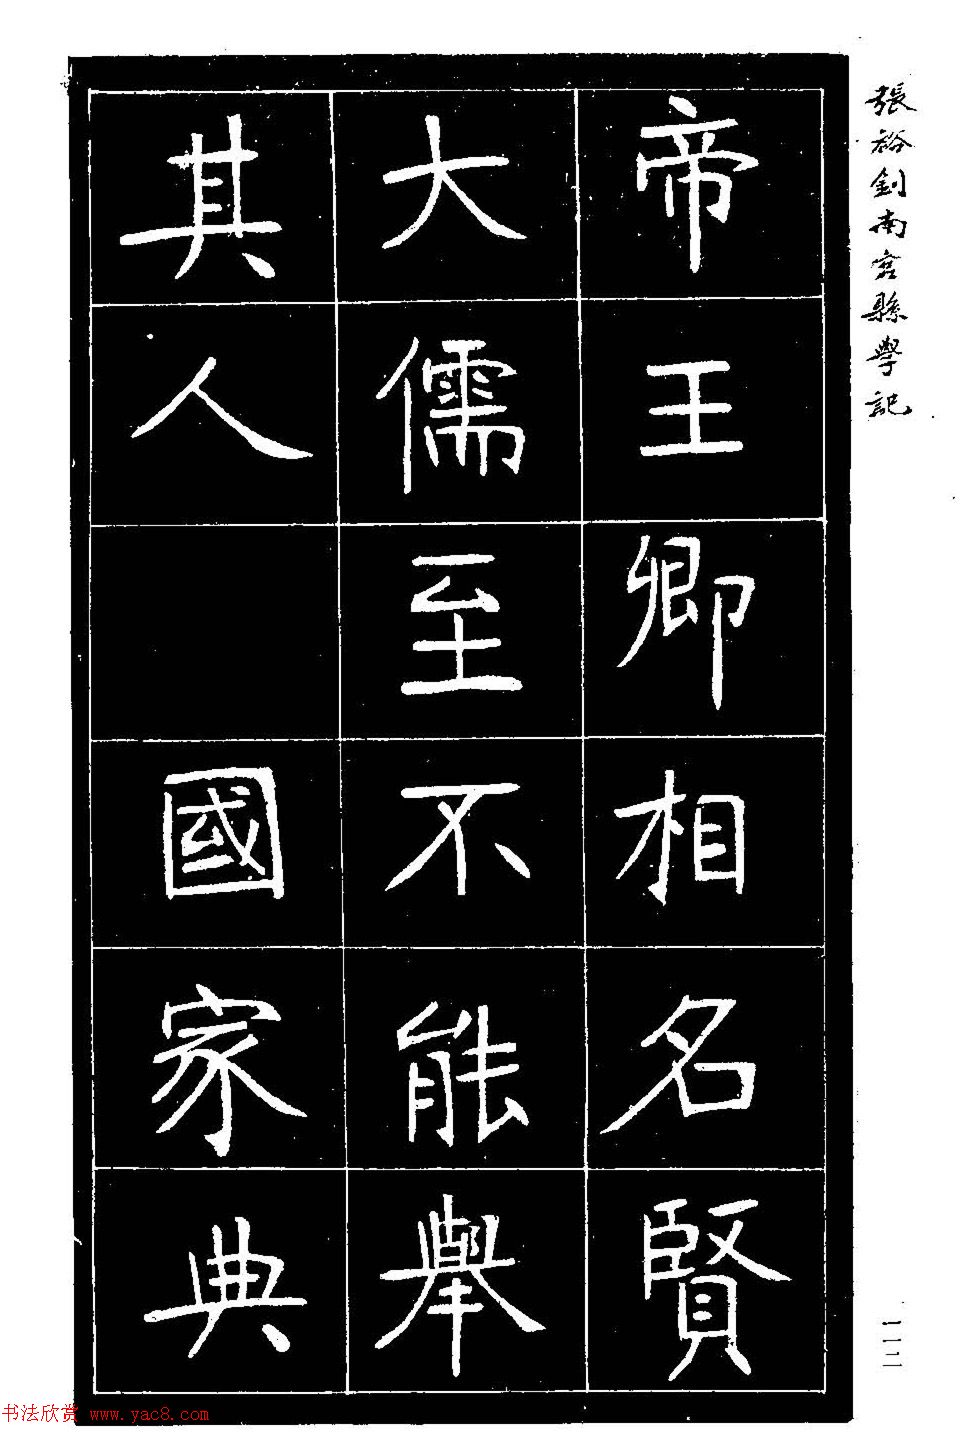 張裕釗南宮縣學記
帝王卿相名賢
大儒至不能舉
其人 國家典
一一二
书法欣赏 www.yac8.com